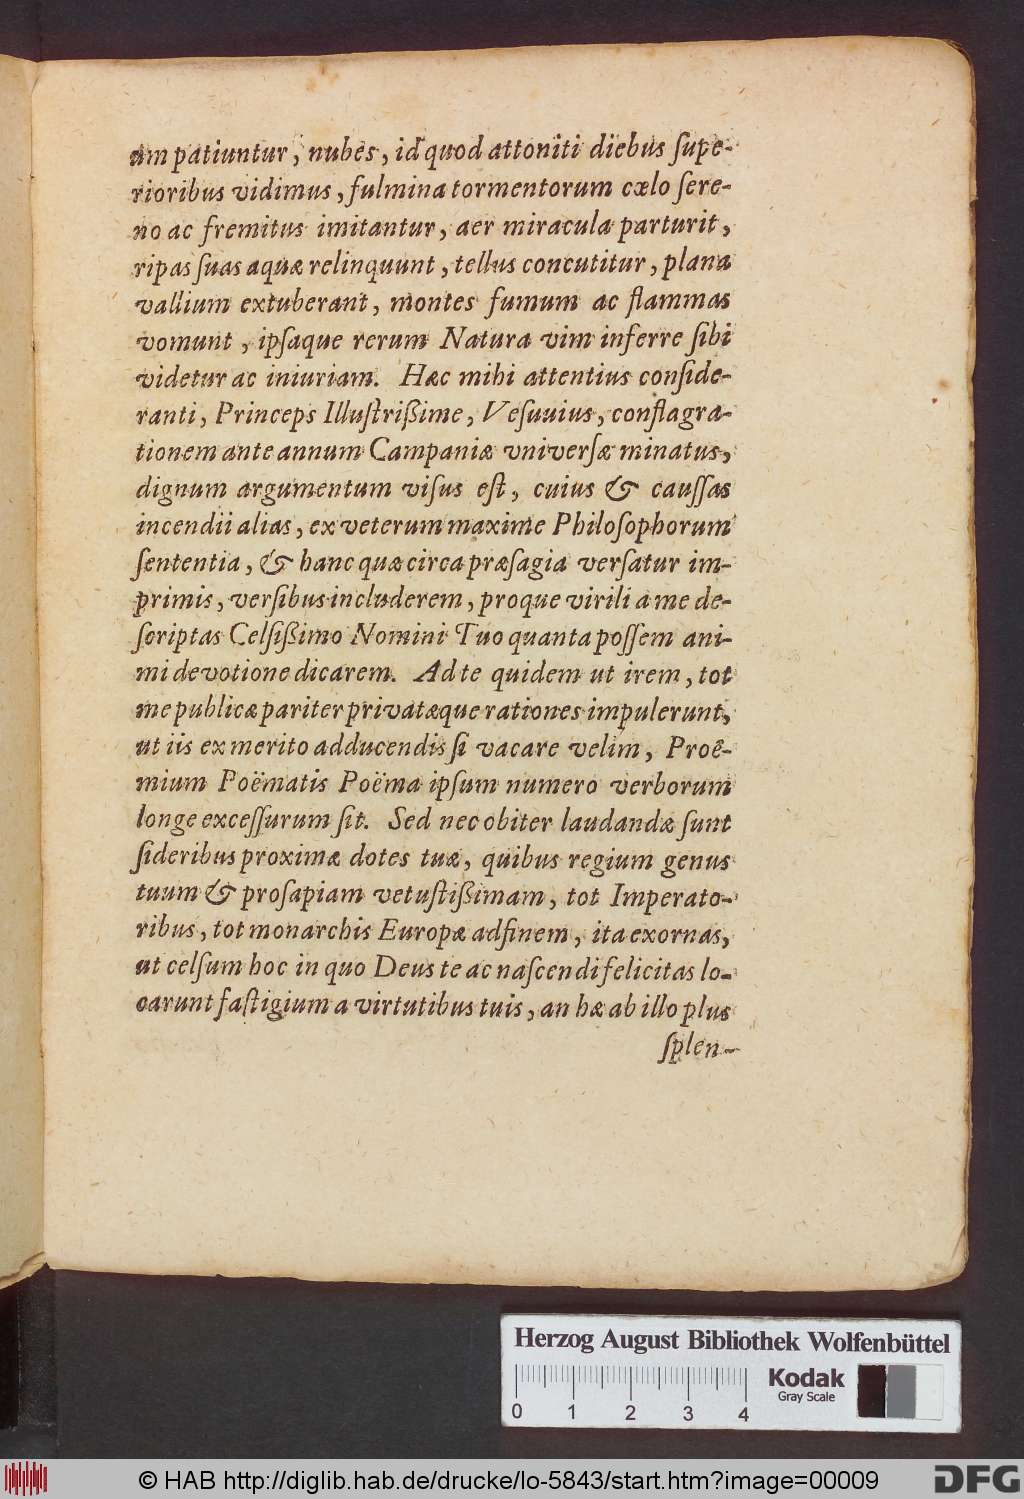 am patiuntur, nubes, id quod attoniti diebus ſupe-
rioribus vidimus, fulmina tormentorum cœlo ſere-
no ac fremitus imitantur, aer miracula parturit,
ripas ſuas aquæ relinquunt, tellus concutitur, plana
vallium extuberant, montes fumum ac flammas
vomunt, ipſaque rerum Natura vim inferre ſibi
videtur ac iniuriam. Hæc mihi attentius conſide-
ranti, Princeps Illuſtrißime, Veſuvius, conflagra-
tionem ante annum Campaniæ vniverſæ minatus,
dignum argumentum viſus eſt, cuius & cauſſas
incendii alias, ex veterum maxime Philoſophorum
ſententia, & hanc quæ circa præſagia verſatur im-
primis, verſibus includerem, proque virili a me de-
ſcriptas Celſißimo Nomini Tuo quanta poſſem ani-
mi devotione dicarem. Ad te quidem ut irem, tot
me publicæ pariter privatæque rationes impulerunt,
ut iis ex merito adducendis ſi vacare velim, Proê-
mium Poëmatis Poëma ipſum numero verborum
longe exceſſurum ſit. Sed nec obiter laudandæ ſunt
ſideribus proximæ dotes tuæ, quibus regium genus
tuum & proſapiam vetuſtißimam, tot Imperato-
ribus, tot monarchis Europæ adfinem, ita exornas,
ut celſum hoc in quo Deus te ac naſcendi felicitas lo-
carunt faſtigium a virtutibus tuis, an hæ ab illo plus
ſplen-
Herzog August Bibliothek Wolfenbüttel
Kodak
Gray Scale
0 1 2 3 4
© HAB http://diglib.hab.de/drucke/lo-5843/start.htm?image=00009
DFG